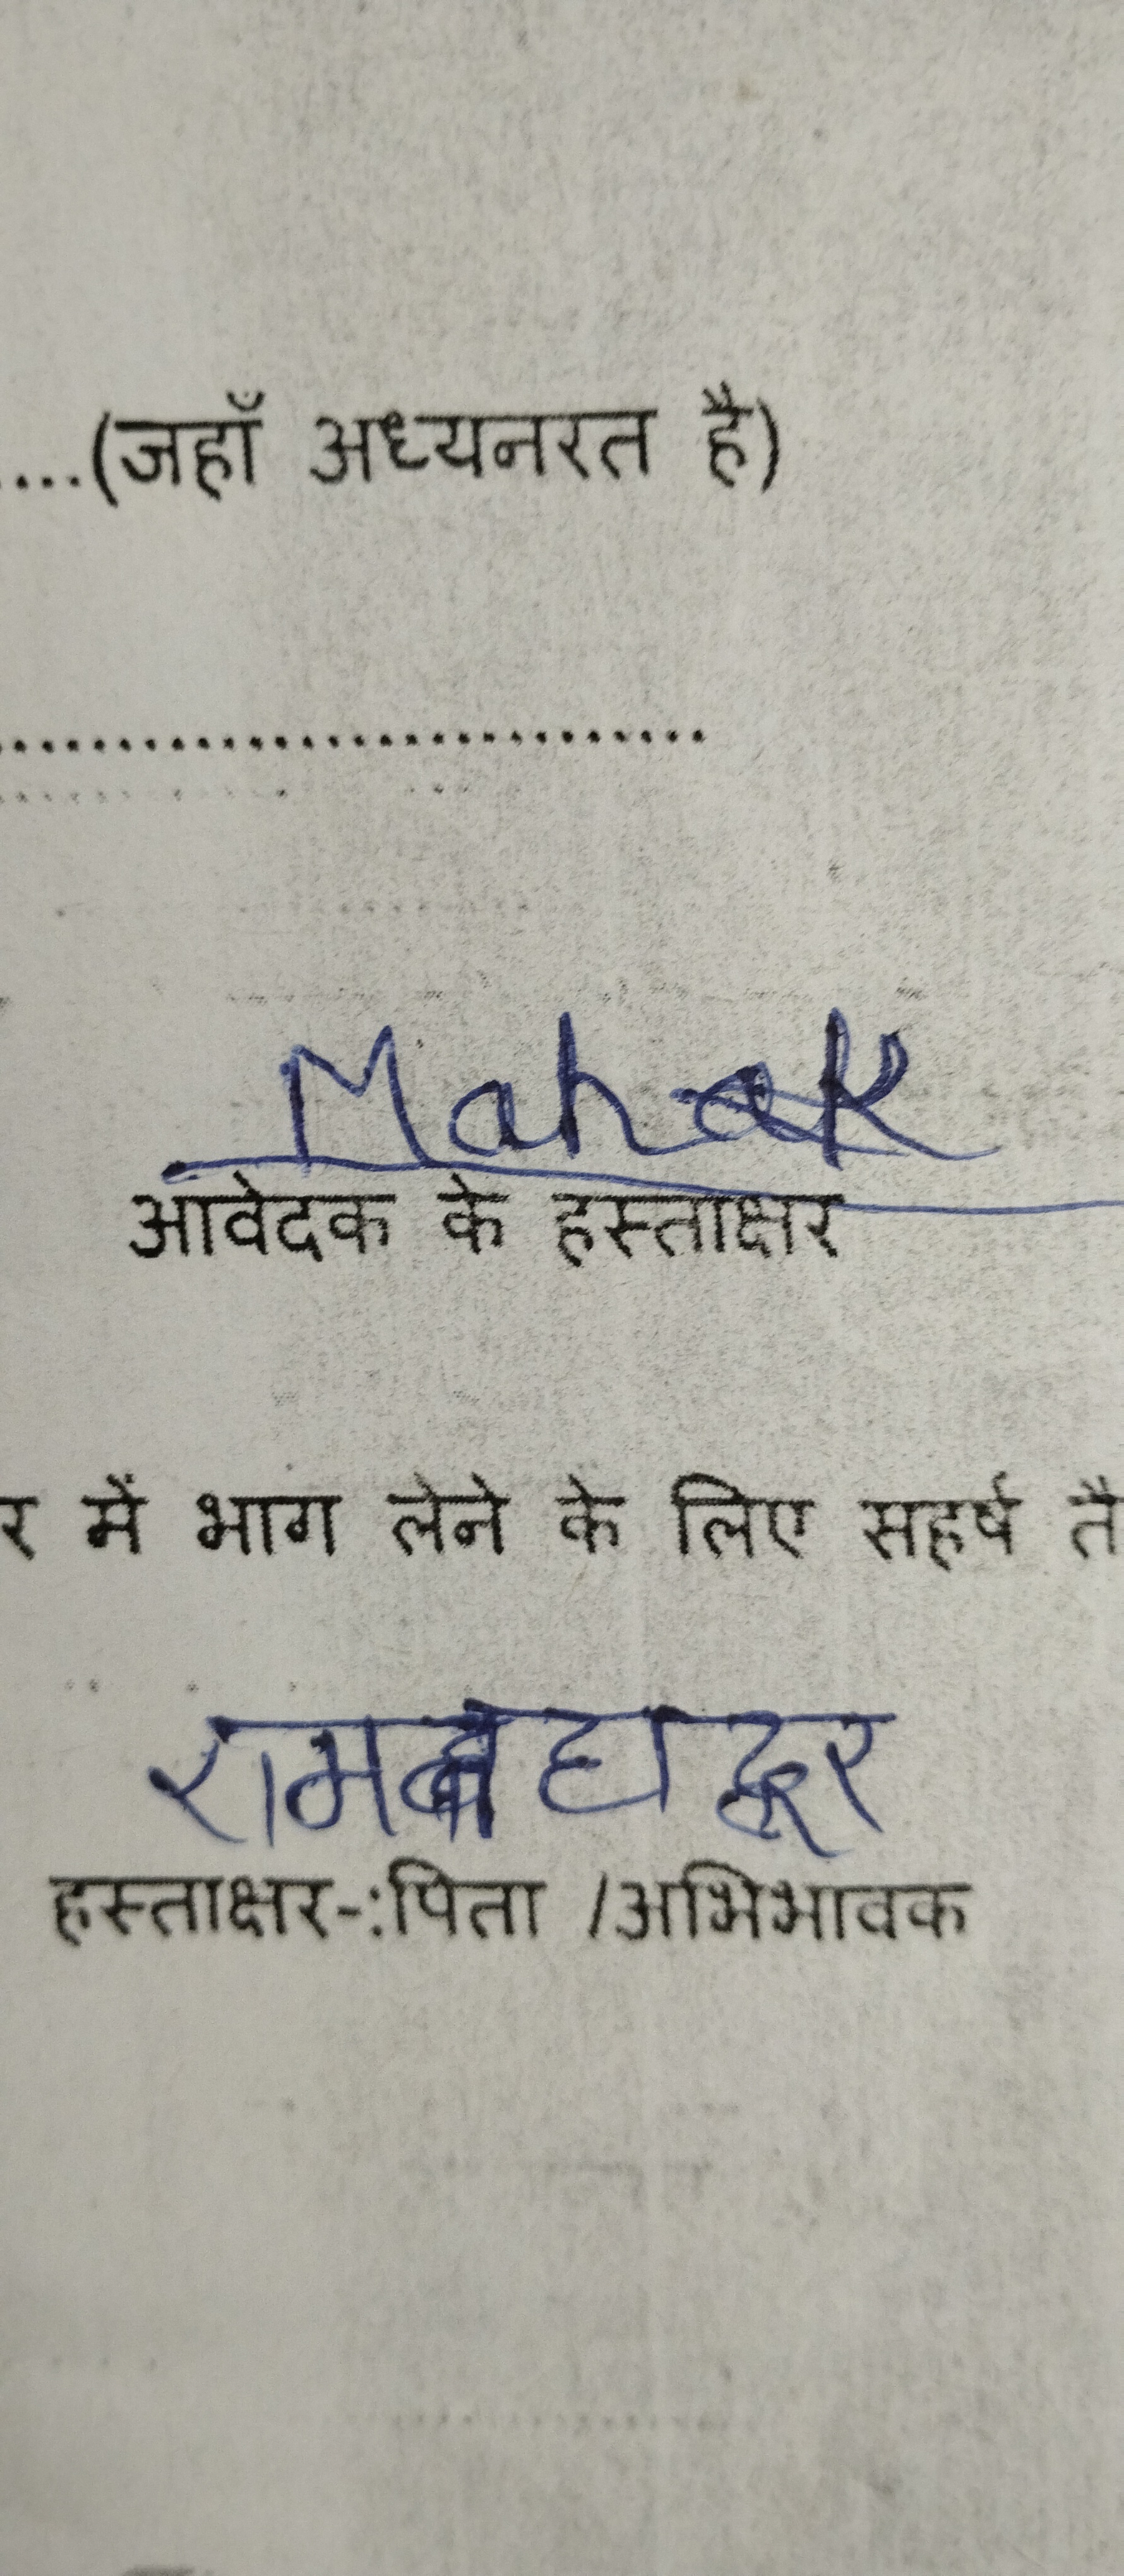 ....(जहाँ अध्यनरत है)
Mahak
आवेदक के हस्ताक्षर
र में भाग लेने के लिए सहर्ष तै
रामबहादूर
हस्ताक्षर-:पिता /अभिभावक